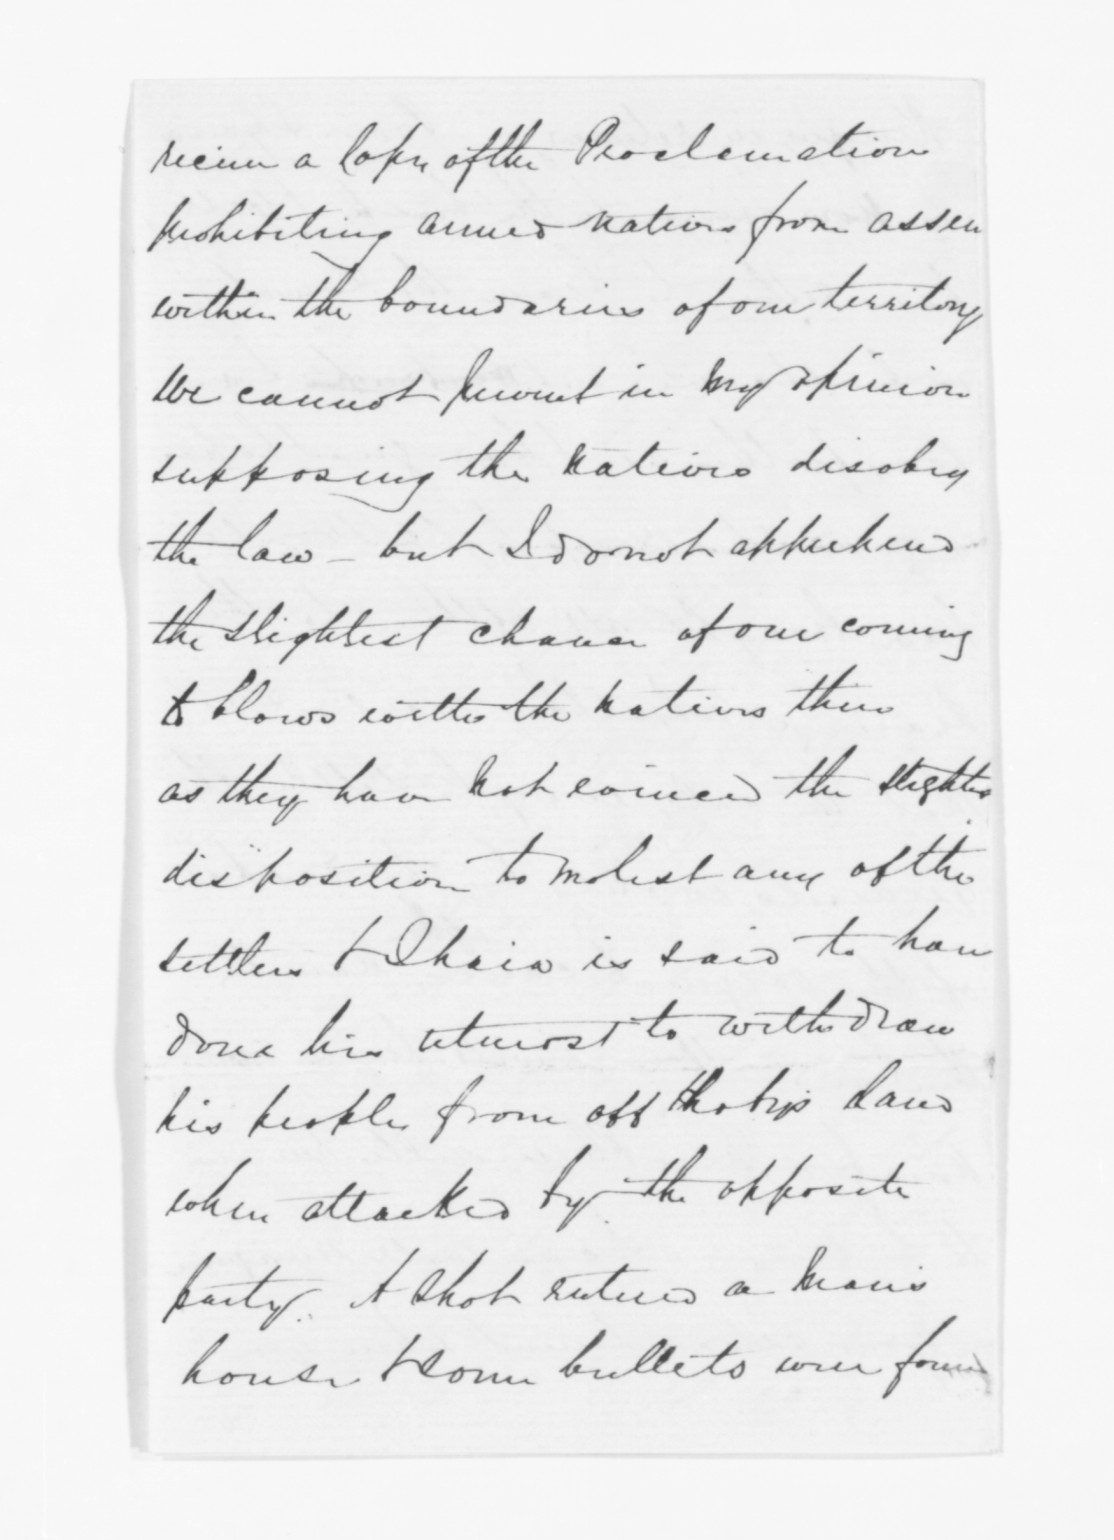 receive a Copy of the Proclamation
prohibiting armed natives from assem
within the boundaries of our territory
We cannot prevent in my opinion
supposing the natives disobey
the law - but I do not apprehend
the slightest chance of our coming
to blows with the natives there
as they have not evinced the slightest
disposition to molest any of the
settlers & Ihaia is said to have
done his utmost to withdraw
his people from off the land
when attacked by the opposite
party. A shot entered a man's
house & some bullets were found